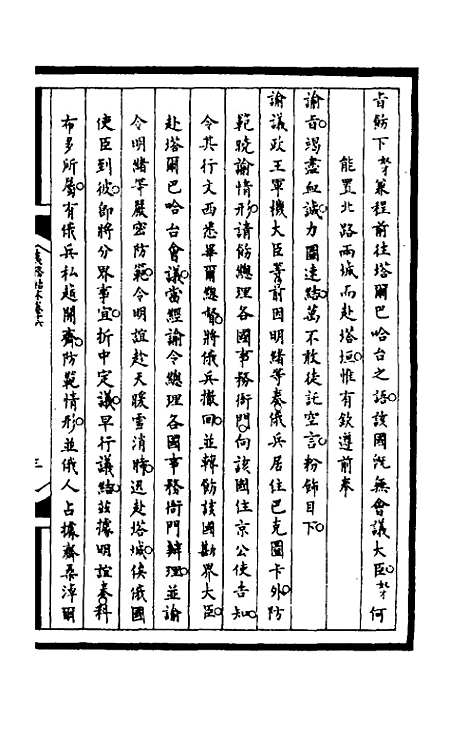 旨飭下奴才兼程前往塔爾巴哈台之語該國旣無會議大臣奴才何
能置北路兩城而赴塔垣惟有欽遵前奉
諭旨竭盡血誠力圖速結萬不敢徒託空言粉飾目下
諭議政王軍機大臣等前因明緒等奏俄兵居住巴克圖卡外防
範曉諭情形請飭總理各國事務衙門向該國住京公使告知
令其行文西悉畢爾總督將俄兵撤回並轉飭該國勘界大臣
赴塔爾巴哈台會議當經諭令總理各國事務衙門辦理並諭
令明緒等嚴密防範令明誼赴天暖雪消時迅赴塔城俟俄國
使臣到彼卽將分界事宜折中定議早行議結玆據明誼奏科
布多所屬有俄兵私越開齋防範情形並俄人占據齋桑淖爾